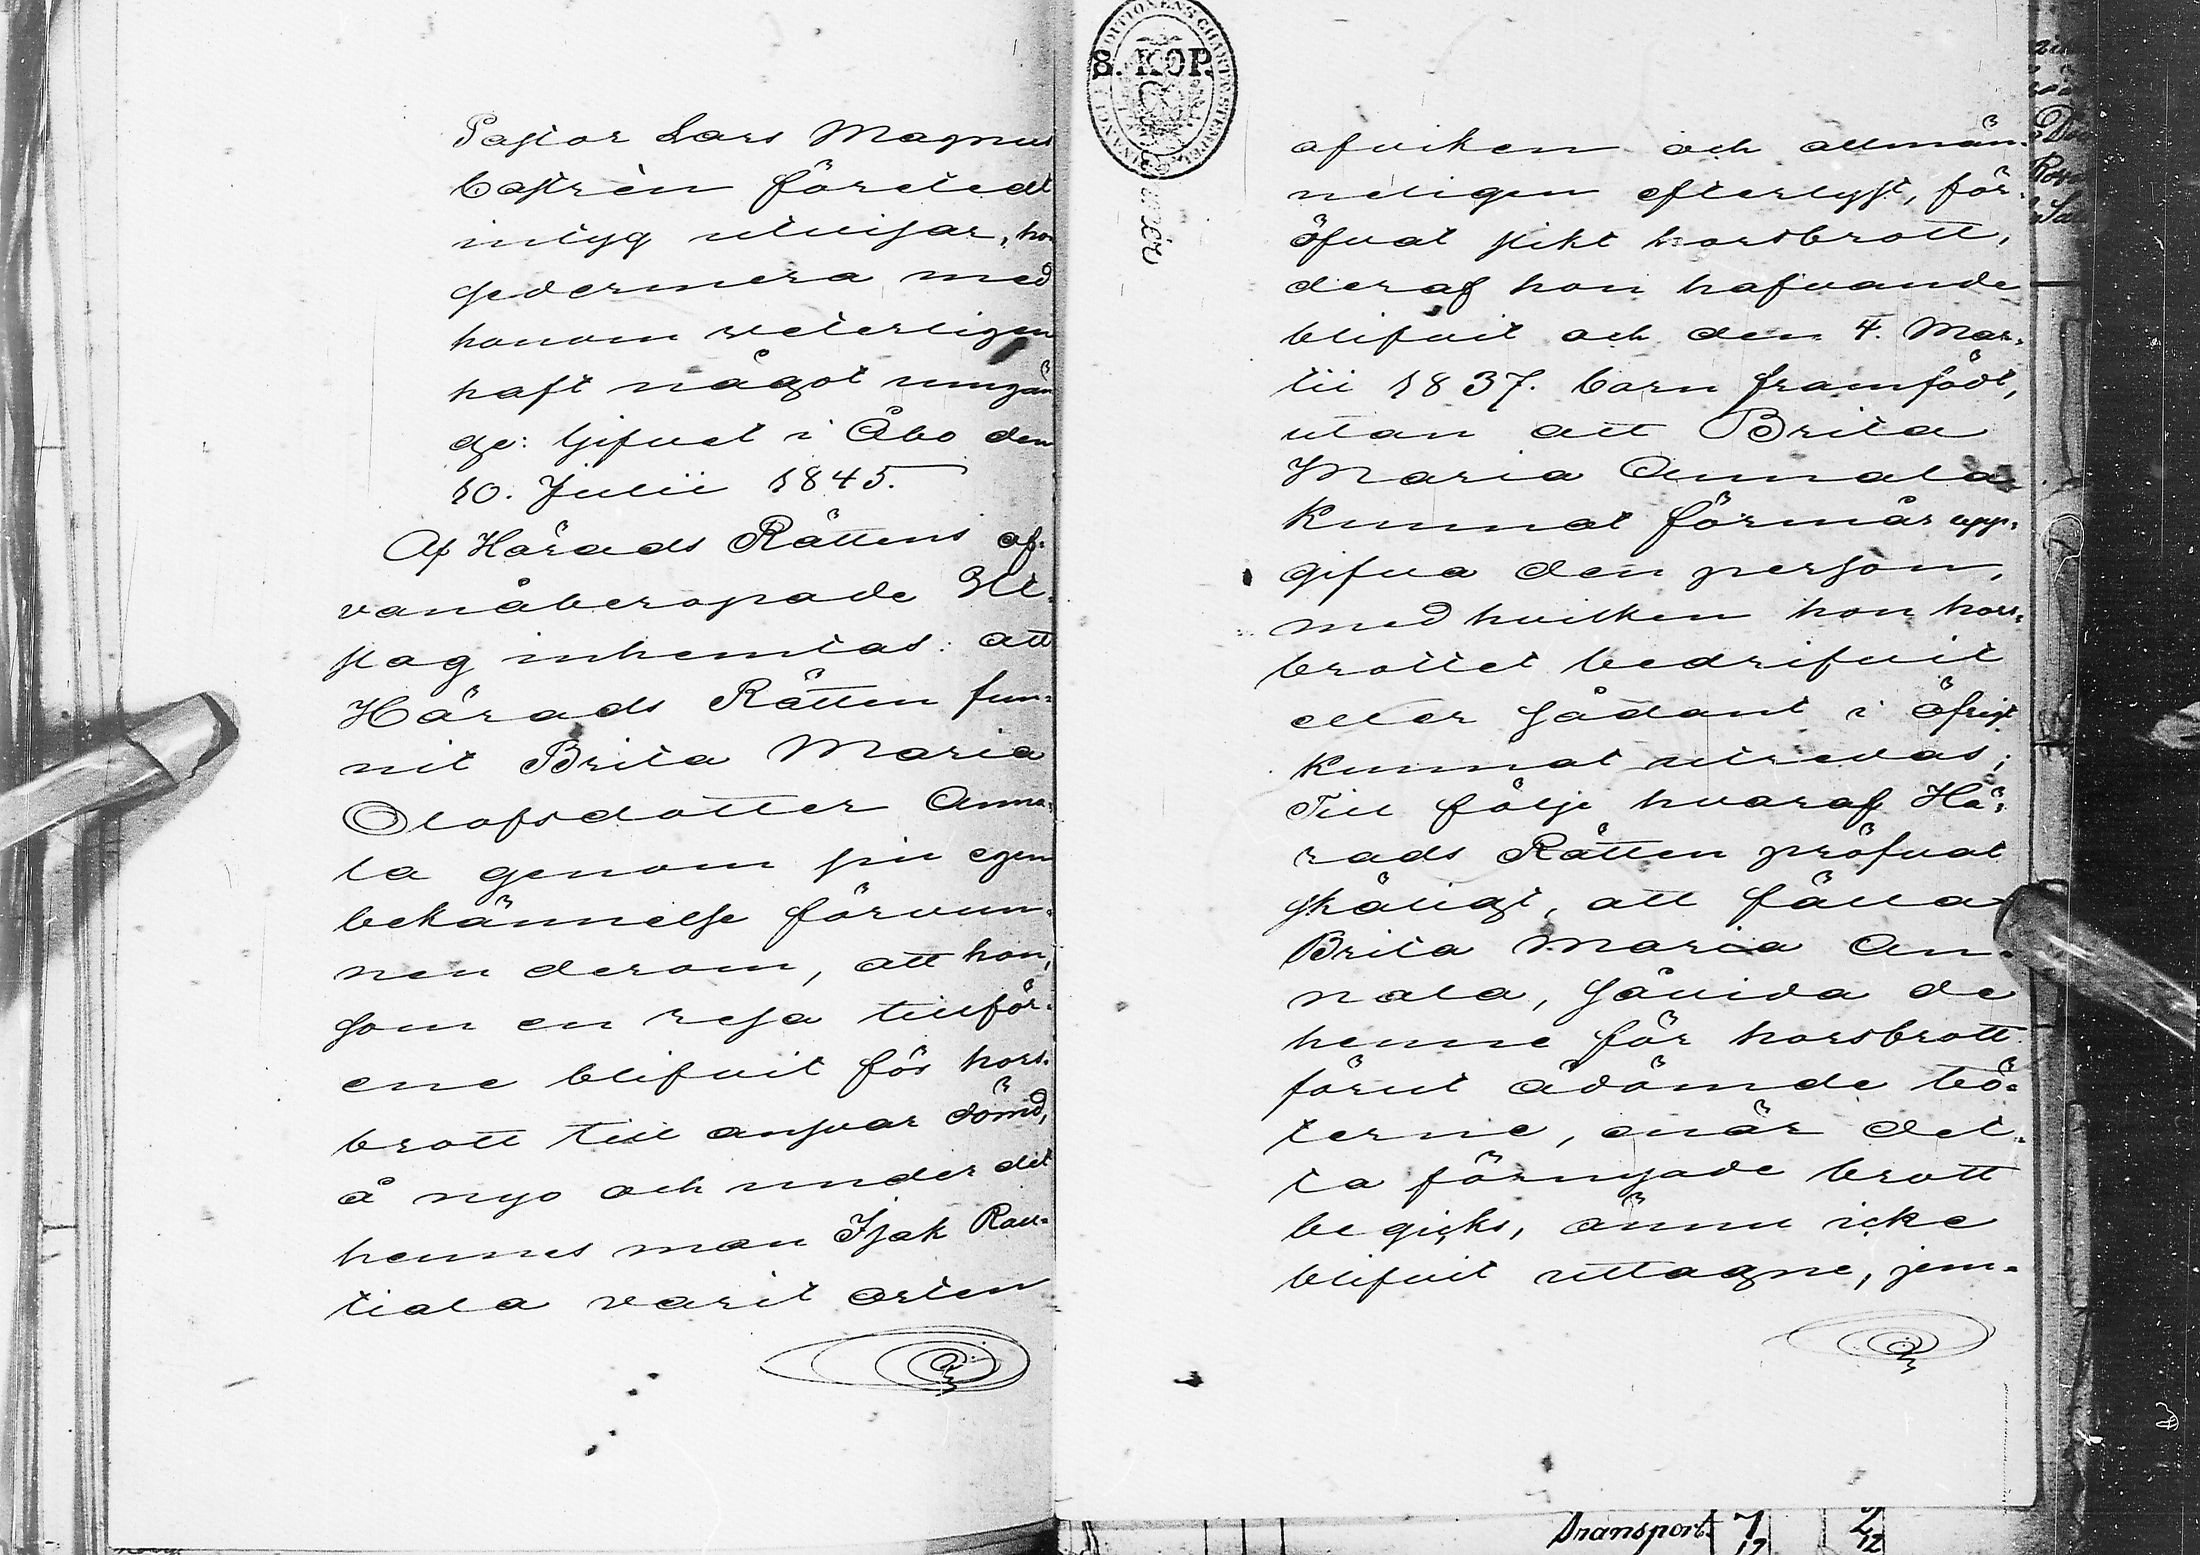 Pastor Lars Magnus
Castrèn företedt
intyg utvisar, hon
sedermera med
honom veterligen
haft något umgän
ge: Gifvet i Åbo den
10. Julii 1845.
Af Härads Rättens of-
vanåberopade Ut-
slag inhemtas: att
Härads Rätten fun-
nit Brita Maria
Olofsdotter Anna-
la genom sin egen
bekännelse förvun-
nen derom, att hon,
som en resa tillför-
ene blifvit för hors-
brott till ansvar dömd,
å nyo och under det
hennes man Isak Rau-
tiala varit orten
8. KOP.
afviken och allmän-
neligen efterlyst, för-
öfvat slikt horsbrott,
deraf hon hafvande
blifvit och den 4. Mar-
tii 1837. barn framfödt,
utan att Brita
Maria Annala
kunnat förmås upp-
gifva den person,
med hvilken hon hors-
brottet bedrifvit
eller sådant i öfrigt
kunnat utredas;
Till följe hvaraf Hä-
rads Rätten pröfvat
skäligt, att fälla
Brita Maria An-
nala, såvida de
henne för horsbrott
förut ådömde bö-
terne, enär det-
ta förnyade brott
begicks, ännu icke
blifvit uttagne, jem-
Transport 7 2